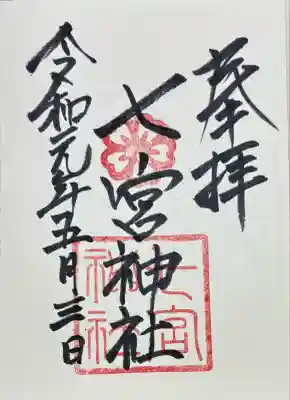 奉拝
七宮神社
令和元年五月三日
七宮
神社